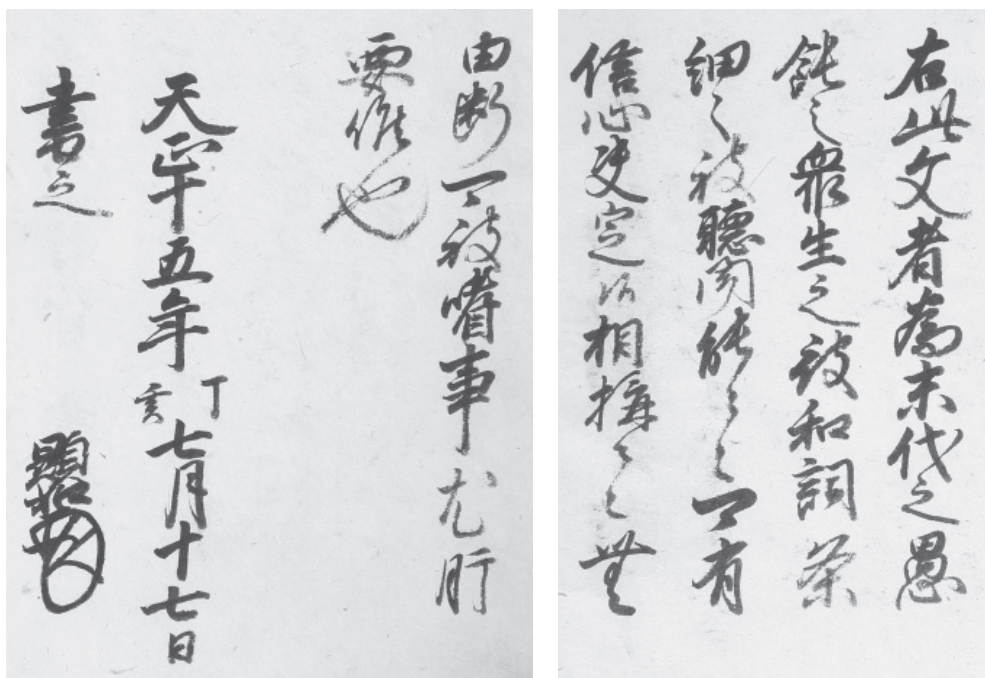 右此文者為末代之愚
鈍之衆生之被和詞条
細〻被聴聞能〻可有
信心决定候相構〻〻無
由断可被嗜事尤肝
要候也
天正十五年丁亥七月十七日
書之 顕如